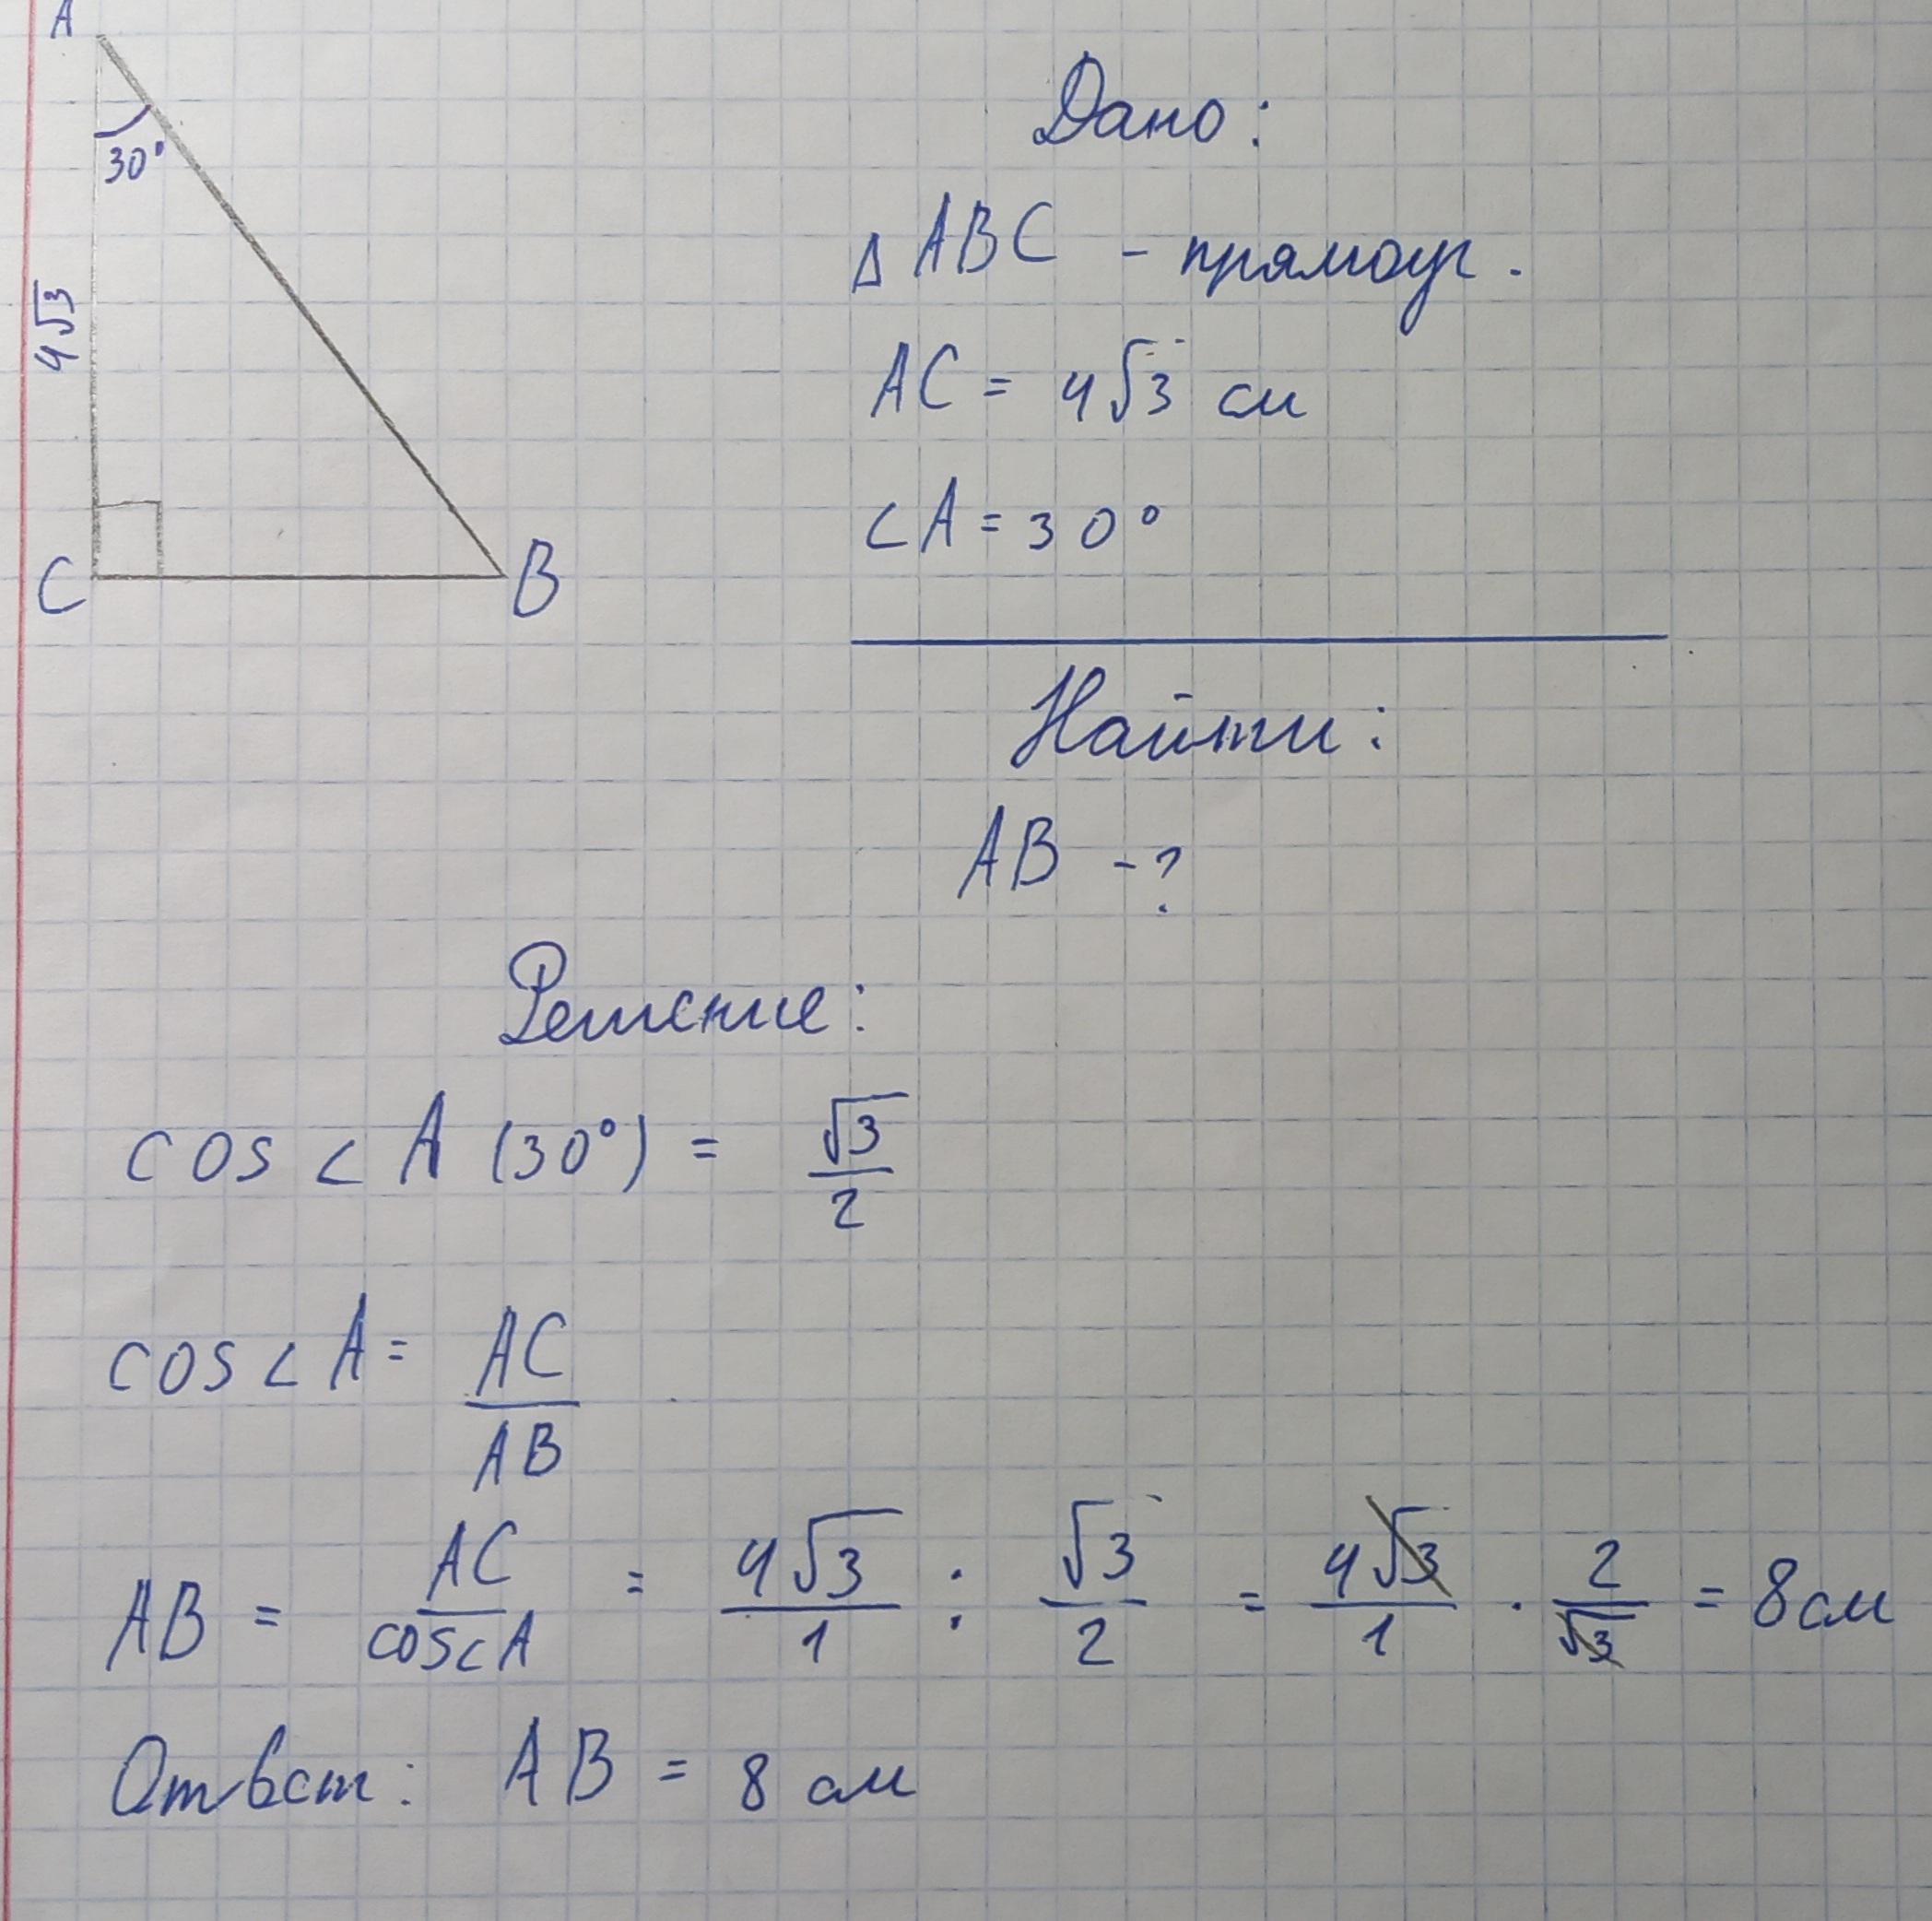 A
30°
4√3
C
B
Дано:
Δ ABC - прямоуг.
AC = 4√3 см
∠A = 30°
Найти:
AB - ?
Решение:
cos ∠ A (30°) = √3/2
cos ∠ A = AC/AB
AB = AC/cos∠A = 4√3/1 : √3/2 = 4√3/1 · 2/√3 = 8 см
Ответ: AB = 8 см